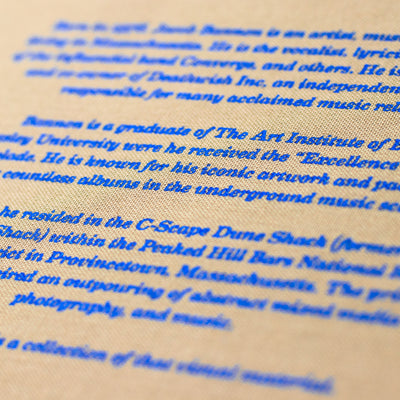 Born in 1976, Jacob Bannon is an artist, mus
living in Massachusetts. He is the vocalist, lyrici
of the influential band Converge, and others. He is
and co-owner of Deathwish Inc, an independen
responsible for many acclaimed music rele
Bannon is a graduate of The Art Institute of B
sley University were he received the "Excellence
olade. He is known for his iconic artwork and pac
countless albums in the underground music sc
he resided in the C-Scape Dune Shack (former
Shack) within the Peaked Hill Bars National
rict in Provincetown, Massachusetts. The pr
pired an outpouring of abstract mixed media
photography, and music.
s a collection of that visual material.